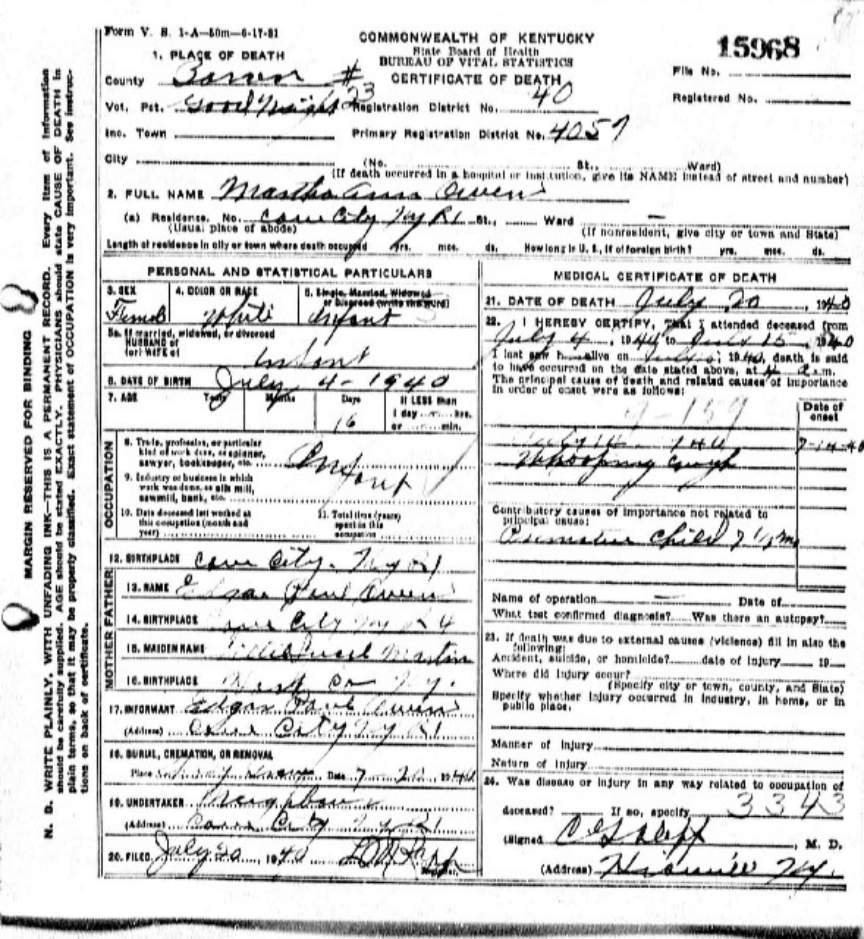 Form V. S. 1-A—50m—6-17-31
COMMONWEALTH OF KENTUCKY
State Board of Health
BUREAU OF VITAL STATISTICS
CERTIFICATE OF DEATH
15968
File No.
Registered No.
1. PLACE OF DEATH
County Barren #
Vot. Pct. Good Night 23 Registration District No. 40
Inc. Town Primary Registration District No. 4057
City (No. St., Ward)
(If death occurred in a hospital or institution, give its NAME instead of street and number)
2. FULL NAME Martha Ann Owens
(a) Residence. No. Cave City Ky R1 St., Ward
(Usual place of abode) (If nonresident, give city or town and State)
Length of residence in city or town where death occurred yrs. mos. ds. How long in U. S., if of foreign birth? yrs. mos. ds.
PERSONAL AND STATISTICAL PARTICULARS
3. SEX 4. COLOR OR RACE 5. Single, Married, Widowed
or Divorced (write the word)
Female White Infant
5a. If married, widowed, or divorced
HUSBAND of
(or) WIFE of Infant
6. DATE OF BIRTH July 4 - 1940
7. AGE Years Months Days If LESS than
1 day hrs.
16 or min.
OCCUPATION
8. Trade, profession, or particular
kind of work done, as spinner,
sawyer, bookkeeper, etc. Infant
9. Industry or business in which
work was done, as silk mill,
sawmill, bank, etc.
10. Date deceased last worked at 11. Total time (years)
this occupation (month and spent in this
year) occupation
12. BIRTHPLACE Cave City. Ky R1
FATHER
13. NAME Edgar Paul Owens
14. BIRTHPLACE Cave City Ky R4
MOTHER
15. MAIDEN NAME Martin
16. BIRTHPLACE Hart Co Ky.
17. INFORMANT Edgar Paul Owens
(Address) Cave City Ky R1
18. BURIAL, CREMATION, OR REMOVAL
Place Date 7 20 1940
19. UNDERTAKER Neighbors
(Address) Cave City Ky R1
20. FILED July 20, 1940
Registrar.
MEDICAL CERTIFICATE OF DEATH
21. DATE OF DEATH July 20, 1940
22. I HEREBY CERTIFY, That I attended deceased from
July 4, 1940 to July 15, 1940
I last saw h alive on July, 1940, death is said
to have occurred on the date stated above, at 4 a.m.
The principal cause of death and related causes of importance
in order of onset were as follows:
Date of
onset
159
7-14-40
Whooping cough
Contributory causes of importance not related to
principal cause:
Premature child 7 1/2 m
Name of operation Date of
What test confirmed diagnosis? Was there an autopsy?
23. If death was due to external causes (violence) fill in also the
following:
Accident, suicide, or homicide? date of injury 19
Where did injury occur?
(Specify city or town, county, and State)
Specify whether injury occurred in industry, in home, or in
public place.
Manner of injury
Nature of injury
24. Was disease or injury in any way related to occupation of
deceased? If so, specify 3343
(Signed) M. D.
(Address) Hiseville Ky.
MARGIN RESERVED FOR BINDING
N. B. WRITE PLAINLY, WITH UNFADING INK—THIS IS A PERMANENT RECORD. Every item of information
should be carefully supplied. AGE should be stated EXACTLY. PHYSICIANS should state CAUSE OF DEATH in
plain terms, so that it may be properly classified. Exact statement of OCCUPATION is very important. See instruc-
tions on back of certificate.